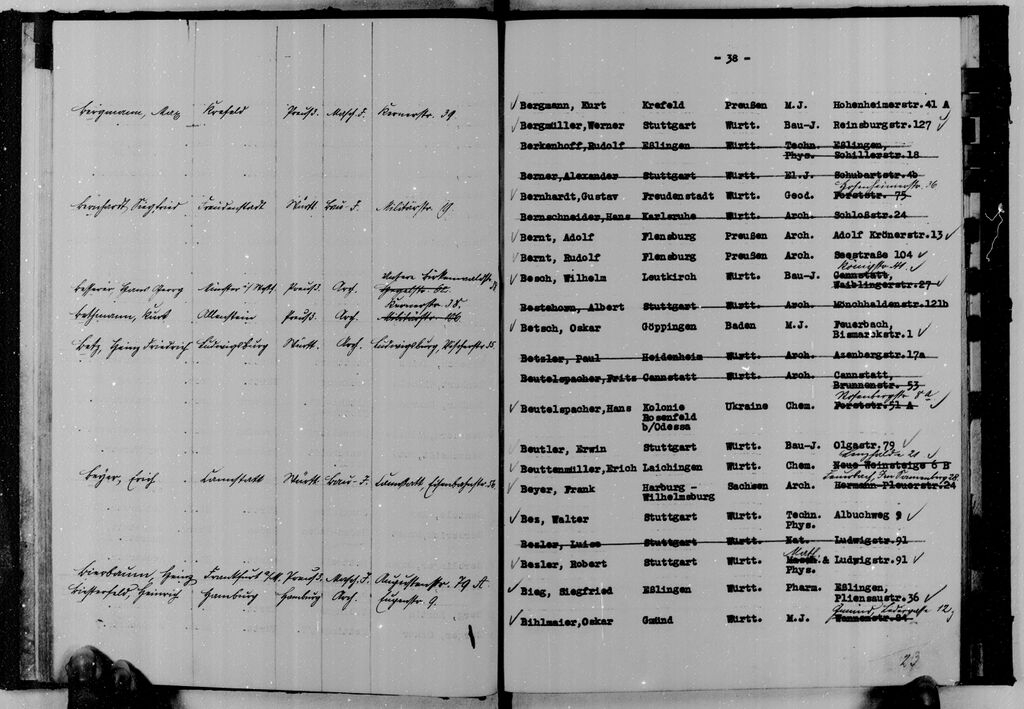 Bergmann, Max Krefeld Preuß. Masch.J. Kernerstr. 39
Bernhardt, Siegfried Freudenstadt Württ. Bau-J. Militärstr. 19.
Besserer, Hans Georg Münster Preuß. Arch.
Kernerstr. 38.
Bethmann, Kurt Allenstein Preuß. Arch. Militärstr. 106
Betz, Heinz Friedrich Ludwigsburg Württ. Arch. Ludwigsburg, 35
Beyer, Erich Cannstatt Württ. Bau-J. Cannstatt, Eisenbahnstr.
Bierbaum, Heinz Frankfurt a/M. Preuß. Masch.J. Augustenstr. 79 A
Biesterfeld, Heinrich Hamburg Hamburg Arch. Eugenstr. 9.
- 38 -
Bergmann, Kurt Krefeld Preußen M.J. Hohenheimerstr.41 A
Bergmüller,Werner Stuttgart Württ. Bau-J. Reinsburgstr.127
Berkenhoff,Rudolf Eßlingen Württ. Techn. Eßlingen,
Phys. Schillerstr.18
Berner,Alexander Stuttgart Württ. El.J. Schubartstr.4b
Hohenheimerstr. 36
Bernhardt,Gustav Freudenstadt Württ. Geod. Forststr. 75
Bernschneider,Hans Karlsruhe Württ. Arch. Schloßstr.24
Bernt, Adolf Flensburg Preußen Arch. Adolf Krönerstr.13
Bernt, Rudolf Flensburg Preußen Arch. Seestraße 104
Königstr. 41.
Besch, Wilhelm Leutkirch Württ. Bau-J. Cannstatt,
Waiblingerstr.27
Bestehorn, Albert Stuttgart Württ. Arch. Mönchhaldenstr.121b
Betsch, Oskar Göppingen Baden M.J. Feuerbach,
Bismarckstr.1
Betzler, Paul Heidenheim Württ. Arch. Asenbergstr.17a
Beutelspacher,Fritz Cannstatt Württ. Arch. Cannstatt,
Brunnenstr. 53
Rosenbergstr. 8a
Beutelspacher,Hans Kolonie Ukraine Chem. Forststr.51 A
Rosenfeld
b/Odessa
Beutler, Erwin Stuttgart Württ. Bau-J. Olgastr.79
Beuttenmüller,Erich Laichingen Württ. Chem. Neue Weinsteige 6 B
Feuerbach, Im Sonnenberg 28
Beyer, Frank Harburg - Sachsen Arch. Hermann-Pleuerstr.24
Wilhelmsburg
Bez, Walter Stuttgart Württ. Techn. Albuchweg 9
Phys.
Bezler, Luise Stuttgart Württ. Nat. Ludwigstr.91
Math.
Bezler, Robert Stuttgart Württ. Masch.& Ludwigstr.91
Phys.
Bieg, Siegfried Eßlingen Württ. Pharm. Eßlingen,
Pliensaustr.36
Gmünd, Ledergasse 12
Bihlmaier,Oskar Gmünd Württ. M.J. Wannenstr.84
23